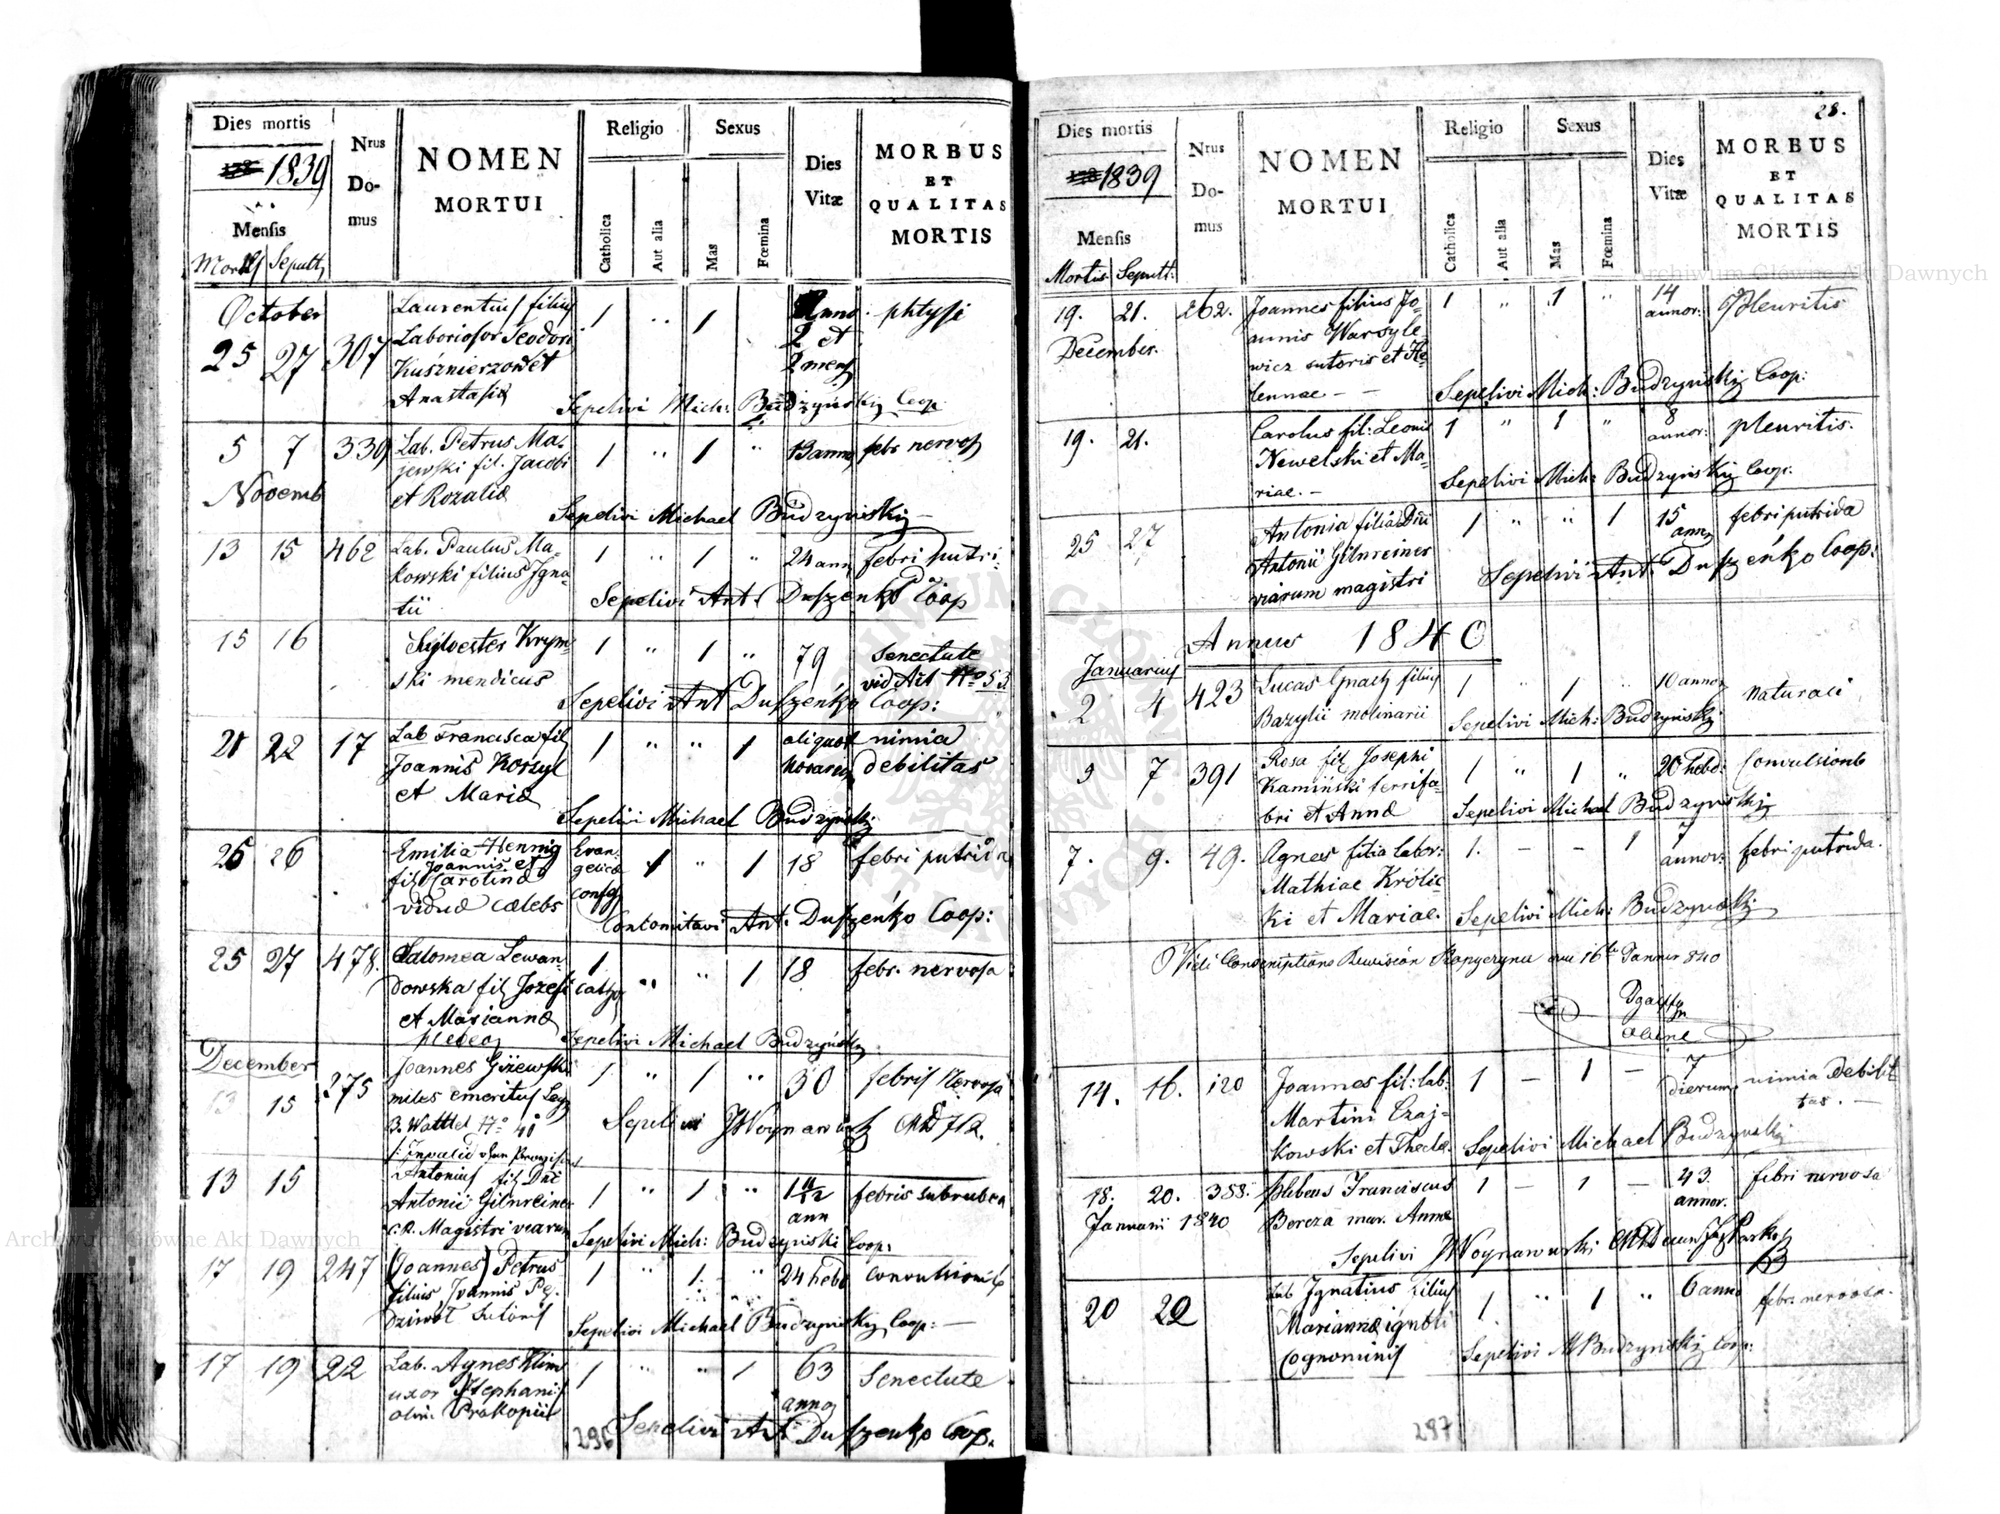 Dies mortis
1839
Mensis
Mortis Sepult.
Nrus
Do-
mus
NOMEN
MORTUI
Religio
Catholica
Aut alia
Sexus
Mas
Fœmina
Dies
Vitæ
MORBUS
ET
QUALITAS
MORTIS
October
25 27 307
Laurentius filius
Laborios Teodori
Kuśznierzow et
Anastasiæ
1 " 1
Anno
2 et
2 mens
phtysi
Sepelivi Mich: Budzyński Coop
5 7 339
Novemb
Lab. Petrus Ma-
jewski fil. Jacobi
et Rozaliæ
1 " 1 "
13 anno febr nervos
Sepelivi Michael Budzyński
13 15 462
Lab. Paulus Ma-
kowski filius Igna-
tii
1 " 1 "
24 ann febri putri:
Sepelivi Ant. Duszeńko Coop
15 16
Sylvester Krym-
ski mendicus
1 " 1 "
79
Senectute
vid Art No 53
Sepelivi Ant Duszeńko Coop:
21 22 17
Lab Francisca fil
Joannis Koszyl
et Mariæ
1 " " 1
aliquot
horarum
nimia
debilitas
Sepelivi Michael Budzyński
25 26
Emilia Hennig
Joannis et
fil Carolinæ
vidua cælebs
Evan-
gelicæ
Confess
1 " 1
18 febri putrida
Concomitavi Ant. Duszeńko Coop:
25 27 478.
Salomea Lewan-
dowska fil Jozefi
et Mariannæ
plebea
1
cathol
" " 1
18 febr. nervosa
Sepelivi Michael Budzyński
December
13 15 275
Joannes Giżewski
miles emeritus
1 " 1 "
30 febris Nervosa
Sepelivi JWoynarowski
13 15
Antonius fil Dni
Antonii Gilnreiner
C.R. Magistri viarum
1 " 1 "
1 11/12
ann
febris subrubra
Sepelivi Mich: Budzyński Coop:
17 19 247
(Joannes) Petrus
filius Joannis Pę-
dziwot Sutoris
1 " 1 "
24 hebd Convulsionis
Sepelivi Michael Budzyński Coop: —
17 19 22
Lab. Agnes Klim
uxor Stephani
olim Prokopii
1 " " 1
63
annos
Senectute
Sepelivi Ant Duszenko Coop.
296
28.
Dies mortis
1839
Mensis
Mortis Sepult:
Nrus
Do-
mus
NOMEN
MORTUI
Religio
Catholica
Aut alia
Sexus
Mas
Fœmina
Dies
Vitæ
MORBUS
ET
QUALITAS
MORTIS
19. 21. 262.
December.
Joannes filius Jo-
annis Warsyle
wicz sutoris et He-
lennae —
1 " 1 "
14
annor:
Pleuritis
Sepelivi Mich: Budzyński Coop:
19. 21.
Carolus fil: Leonis
Newelski et Ma-
riae. —
1 " 1 "
8
annor:
pleuritis.
Sepelivi Mich: Budzyński Coop:
25 27
Antonia filia Dni
Antonii Gilnreiner
viarum magistri
1 " " 1
15
ann
febri putrida
Sepelivi Ant. Duszeńko Coop:
Annus 1840
Januarius
2 4 423
Lucas Gnach filius
Bazylii molinarii
1 " 1 "
10 annor naturali
Sepelivi Mich: Budzyński
5 7 391
Rosa fil Josephi
Kamiński ferrifa-
bri et Annæ
1 " 1 "
20 hebd: Convulsionis
Sepelivi Michael Budzyński
7. 9. 49.
Agnes filia labor:
Mathiae Królic-
ki et Mariae.
1. — — 1
7
annor:
febri putrida.
Sepelivi Mich: Budzyński
14. 16. 120
Joannes fil: lab.
Martini Czaj-
kowski et Theclæ.
1 — 1 —
7
dierum
nimia debili
tas. —
Sepelivi Michael Budzyński
18. 20. 388.
Januarii 1840
plebeus Franciscus
Bereza mar. Annæ
1 — 1 —
43.
annor.
febri nervosa
Sepelivi JWoynarowski
20 22
Lab Ignatius filius
Mariannæ ignoti
Cognominis
1. " 1 "
6 anno febri nervosa.
Sepelivi MBudzyński Coop:
297
Archiwum Główne Akt Dawnych
Archiwum Główne Akt Dawnych